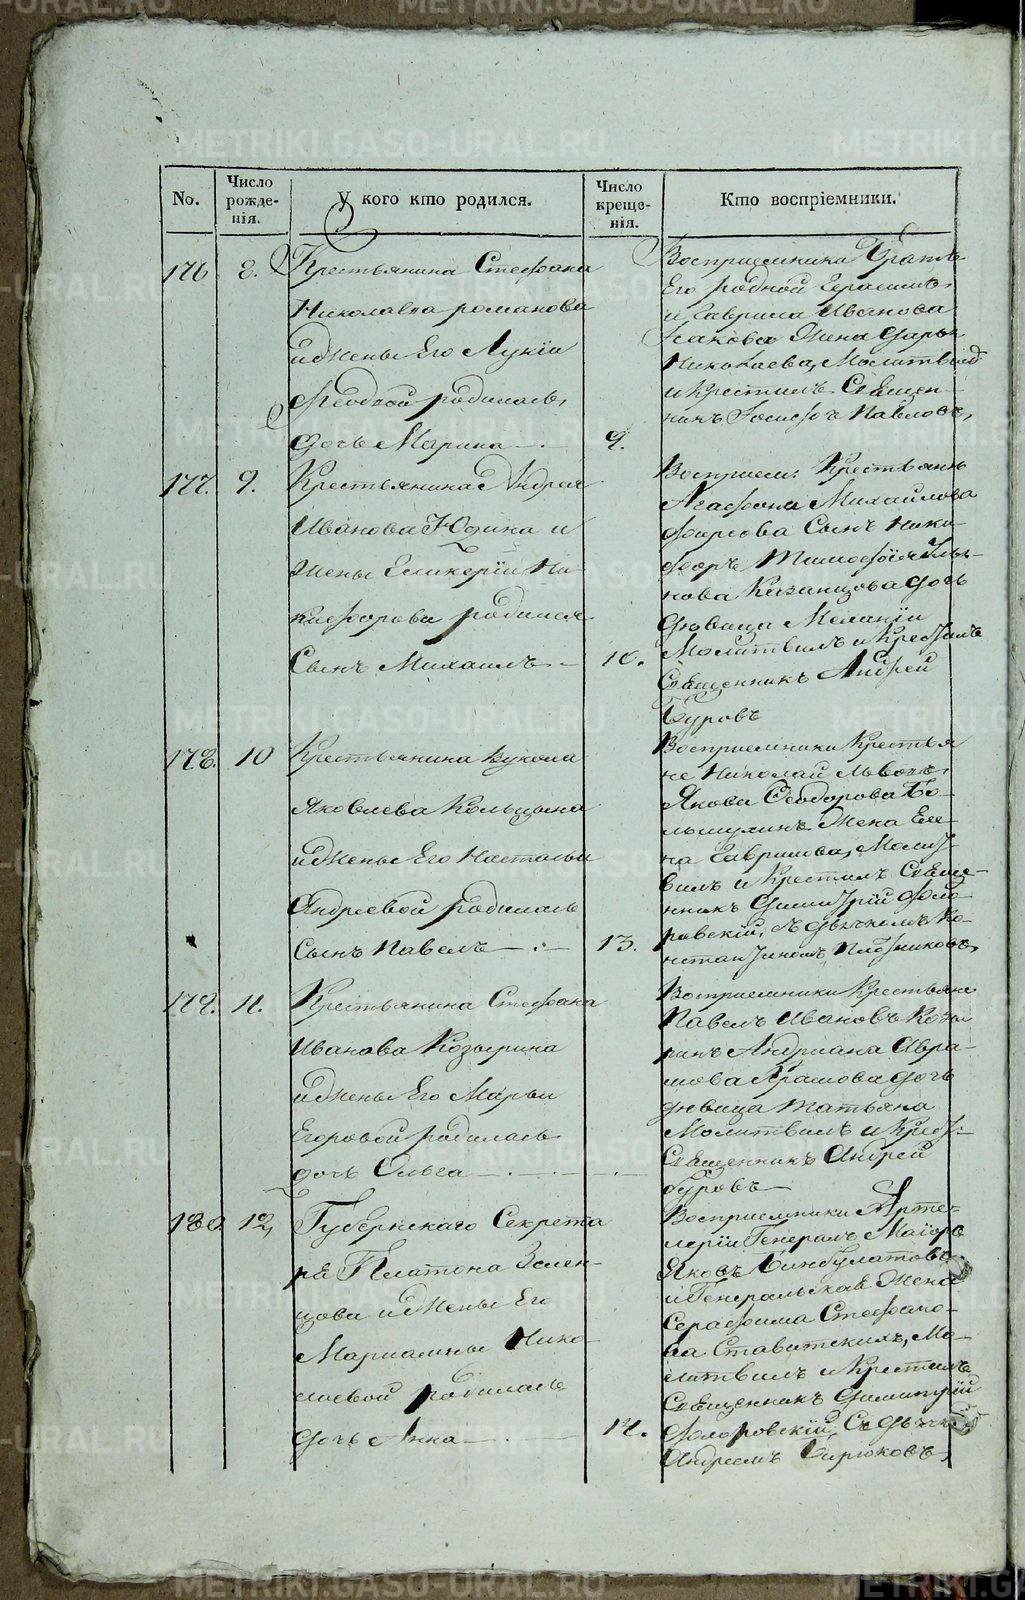 No.
Число рожде-нія.
У кого кто родился.
Число креще-нія.
Кто воспріемники.
176
8.
Крестьянина Стефана
Николаева романова
и жены Его Лукіи
родилась
дочь Марина
9.
Восприемники Братъ
Его родной Герасимъ
и Гаврила Иванова
жена дарья
Николаева, Молитвилъ
и Крестилъ Священ-
никъ Іосифъ Павловъ,
177.
9.
Крестьянина Андрея
Иванова Юдина и
жены Гликеріи Ни-
кифорова родился
Сынъ Михаилъ
10.
Восприем: Крестьянъ
Агафона Михайлова
Фирсова Сынъ Ники-
форъ Тимофія Улья-
нова Казанцова дочь
дѣвица Меланіи
Молитвилъ и Крестилъ
Священникъ Андрей
Буровъ
178.
10
Крестьянина Вукола
Яковлева Кольцына
и жены Его Настасьи
Андреевой родилась
Сынъ Павелъ
13.
Восприемники Крестья
не Николай Львовъ,
Якова Феодорова Бо-
льшухинъ жена Еле-
на Гаврилова, Молит-
вилъ и Крестилъ Свяще-
нникъ Димитрій Фло-
ровскій, съ дьячкомъ Ко-
нстантиномъ Плотниковъ,
179.
11.
Крестьянина Стефана
Иванова Козырина
и жены Его Марьи
Егоровой родилась
дочь Ольга
Восприемники Крестьяне
Павелъ Ивановъ Козы
ринъ Андриана Авра-
мова дочь
дѣвица татьяна
Молитвилъ и Крест:
Священникъ Андрей
Буровъ
180
12,
Губернскаго Секрета
ря Платона Зелен-
цова и жены Его
Марианны Нико-
лаевой родилась
дочь Анна
14.
Восприемники Арти-
леріи Генералъ Маіоръ
Яковъ
и Генеральская жена
Серафима Стефано-
ва Ставитскихъ, Мо-
литвилъ и Крестилъ
Священникъ Димитрій
Флоровскій, Съ дьячк
Андреемъ Бирюковъ,
METRIKI.GASO-URAL.RU